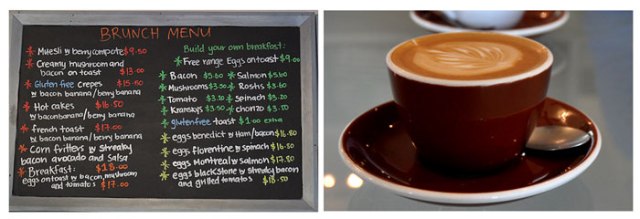 BRUNCH MENU
Muesli w berry compote $9.50
Creamy mushroom and
bacon on toast $13.00
Gluten free crepes $15.50
w bacon banana / berry banana
Hot cakes $16.50
w bacon banana / berry banana
french toast $17.00
w bacon banana / berry banana
Corn fritters w streaky
bacon avocado and salsa
$18.00
Breakfast:
eggs on toast w bacon, mushroom
and tomato $17.00
Build your own breakfast:
Free range Eggs on toast $9.00
Bacon $3.60 Salmon $3.60
Mushrooms $3.50 Rostis $3.60
Tomato $3.50 Spinach $3.50
Kransky $3.50 chorizo $3.50
gluten free toast $1.00 extra
eggs benedict w Ham/bacon $16.50
eggs florentine w spinach $16.50
eggs Montreal w salmon $17.50
eggs blackstone w streaky bacon
and grilled tomatos $18.50